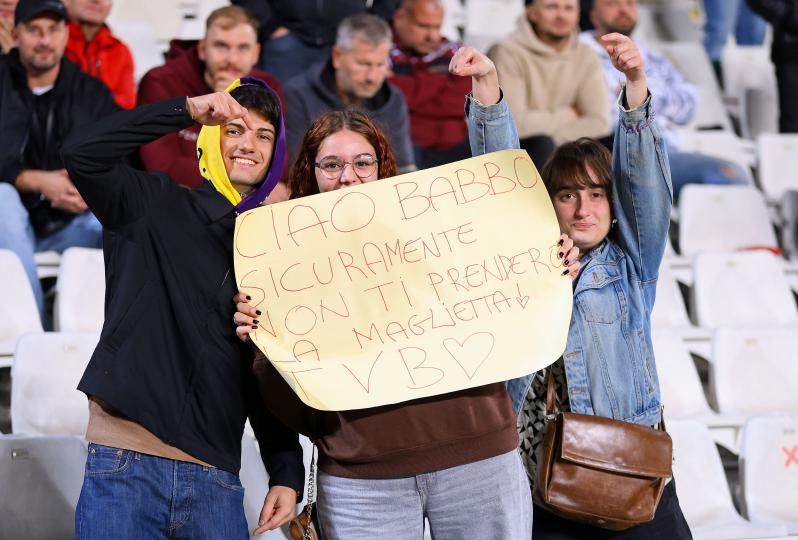 CIAO BABBO
SICURAMENTE
NON TI PRENDERÒ
LA MAGLIETTA!
TVB